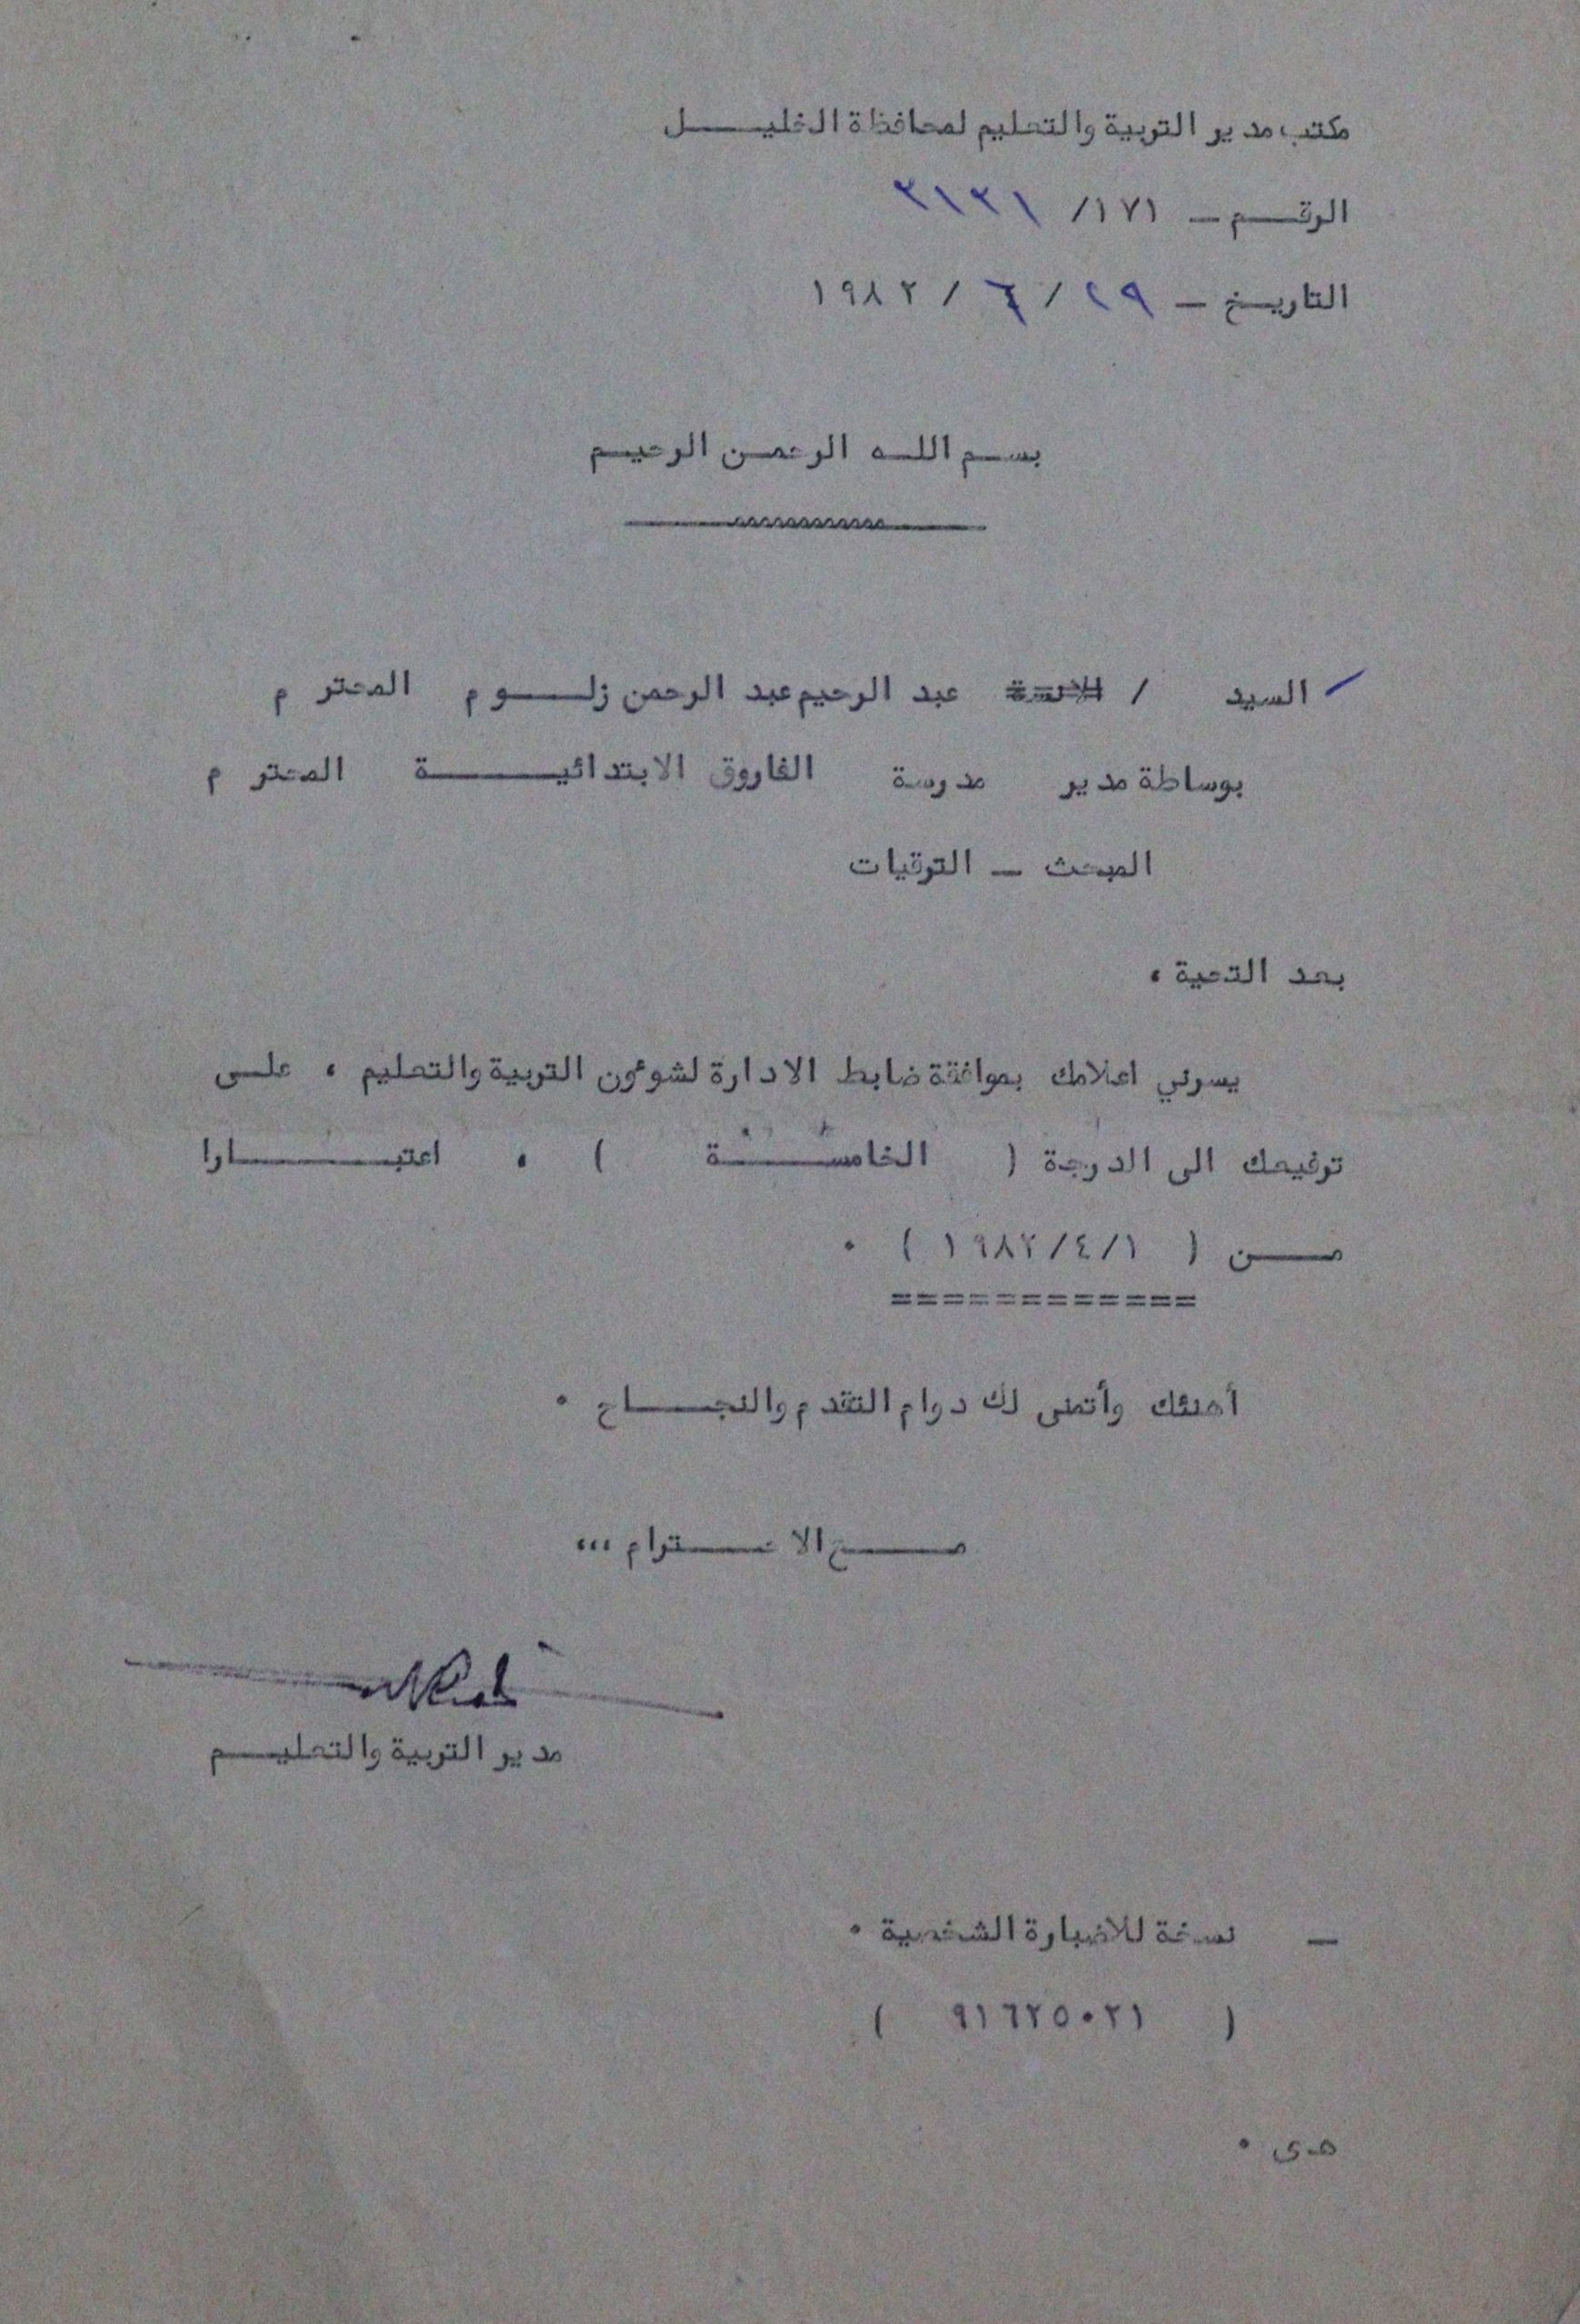 مكتب مدير التربية والتعليم لمحافظة الخليـــل
الرقـــم ـ ١٧١/ ٣١٣١
التاريــخ ـ ٢٩ / ٦ / ١٩٨٢
بســم اللــه الرحمــن الرحيــم
السيد / الآنسة عبد الرحيم عبد الرحمن زلـــوم المحترم
بوساطة مدير مدرسة الفاروق الابتدائيـــة المحترم
المبحث ـ الترقيات
بعد التحية ،
يسرني اعلامك بموافقة ضابط الادارة لشوءون التربية والتعليم ، علــى
ترفيعك الى الدرجة ( الخامســـة ) ، اعتبـــارا
مـــن ( ١٩٨٢/٤/١ ) ٠
============
أهنئك وأتمنى لك دوام التقدم والنجـــاح ٠
مـــع الاحـــترام ،،،
مدير التربية والتعليـــم
ـ نسخة للاضبارة الشخصية ٠
( ٩١٦٢٥٠٢١ )
هـى ٠